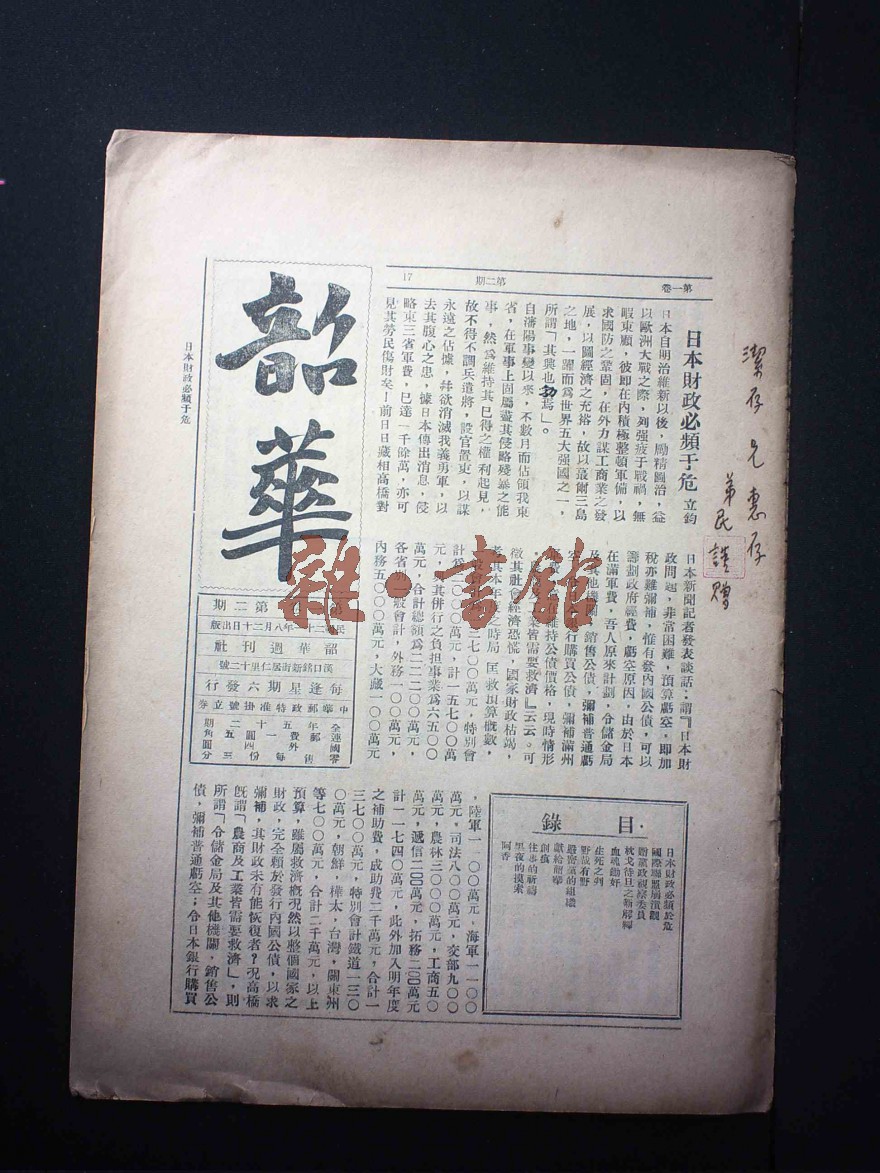 第一卷
第二期
17
潔存兄惠存
弟民謹贈
日本財政必頻于危 立鈞
日本自明治維新以後，勵精圖治，益
以歐洲大戰之際，列强疲于戰禍，無
暇東顧，彼卽在內積極整頓軍備，以
求國防之鞏固，在外力謀工商業之發
展，以圖經濟之充裕，故以蕞爾三島
之地，一躍而爲世界五大强國之一，
所謂「其興也勃焉」。
自瀋陽事變以來，不數月而佔領我東
省，在軍事上固屬盡其侵略殘暴之能
事，然爲維持其已得之權利起見，
故不得不調兵遣將，設官置吏，以謀
永遠之佔據，幷欲消滅我義勇軍，以
去其腹心之患，據日本傳出消息，侵
略東三省軍費，已達一千餘萬，亦可
見其勞民傷財矣！前日日藏相高橋對
日本新聞記者發表談話：謂『日本財
政問題，非常困難，預算虧空，卽加
稅亦難彌補，惟有發內國公債，可以
籌劃政府經費，虧空原因，由於日本
在滿軍費，吾人原來計劃，令儲金局
及其他機關，銷售公債，彌補普通虧
行購買公債，彌補滿州
維持公債價格，現時情形
業皆需要救濟』云云。可
徵其社會經濟恐慌，國家財政枯竭，
者其本年度之時局，匡救預算概數，
七〇〇萬元，特別會
計爲二〇〇〇萬元，計一五七〇〇萬
元，其併行之負担事業爲六五〇〇
萬元，合計總額爲二二二〇〇萬元，
各省別一般會計，外務一〇〇萬元，
內務五〇〇〇萬元，大藏一〇〇萬元
，陸軍一〇〇〇萬元，海軍一一〇〇
萬元，司法八〇〇萬元，交部九〇〇
萬元，農林三〇〇〇萬元，工商五〇
萬元，遞信二〇〇萬元，拓務二〇〇萬元
計一一七四〇萬元，此外加入明年度
之補助費，成助費二千萬元，合計一
三七〇〇萬元，特別會計鐵道一三〇
〇萬元，朝鮮，樺太，台灣，關東州
等七〇〇萬元，合計二千萬元，以上
預算，雖屬救濟槪況然以整個國家之
財政，完全賴於發行內國公債，以求
彌補，其財政未有能恢復者？况高橋
旣謂「農商及工業皆需要救濟」，則
所謂「令儲金局及其他機關，銷售公
債，彌補普通虧空；令日本銀行購買
韶華
第二期
民國二十一年八月二十日出版
韶華週刊社
漢口銘新街居仁里十二號
每逢星期六發行
中華郵政特准掛號立券
日本財政必頻于危
目錄
日本財政必頻於危
國際聯盟崩潰觀
血魂鋤奸
生死之判
野哉有野
嚴密黨的組織
獻給韶華
創痕
往事的祈禱
黑夜的摸索
阿香
雜·書館